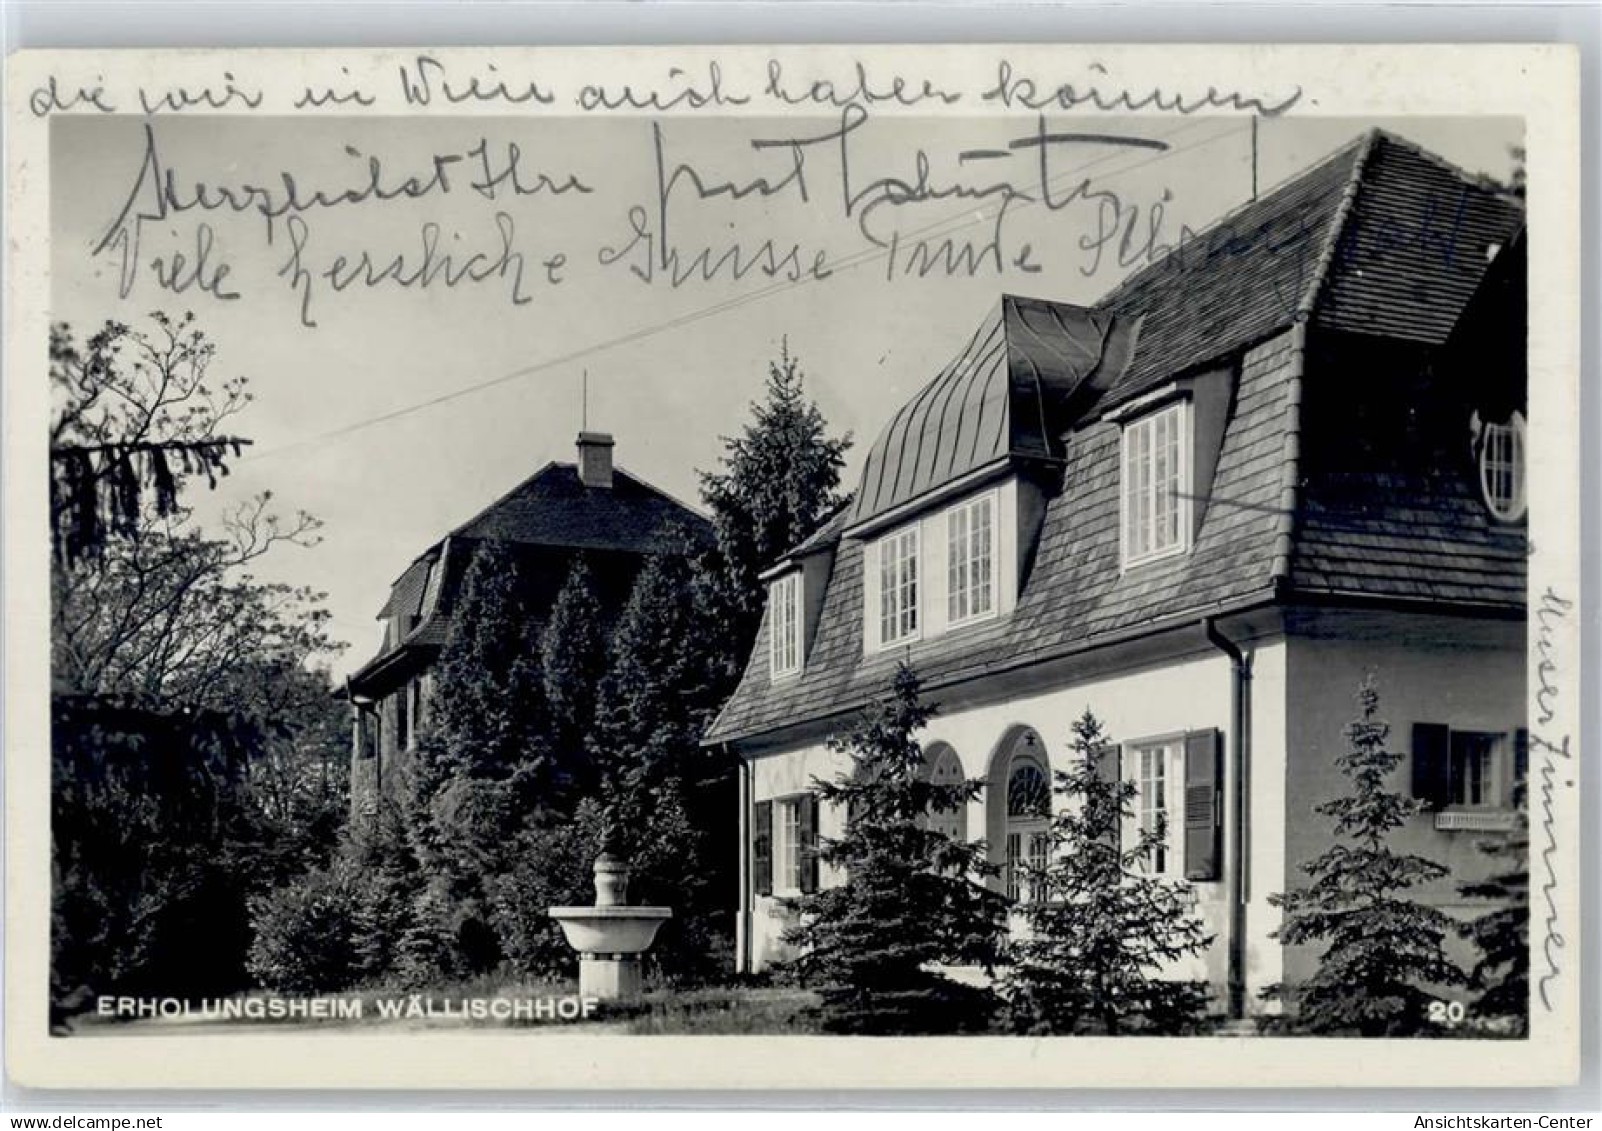 die wir in Wien auch haben können.
Herzlichst Ihre
Viele herzliche Grüsse Trude
Unser Zimmer
ERHOLUNGSHEIM WÄLLISCHHOF
20
the best for collectors
Ansichtskarten-Center
delcampe.net